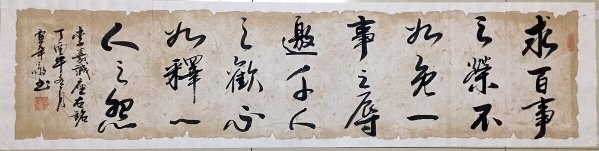 求百事
之榮不
如免一
事之辱
邀千人
之歡不
如釋一
人之怨
李嘉誠座右銘
丁酉年冬月